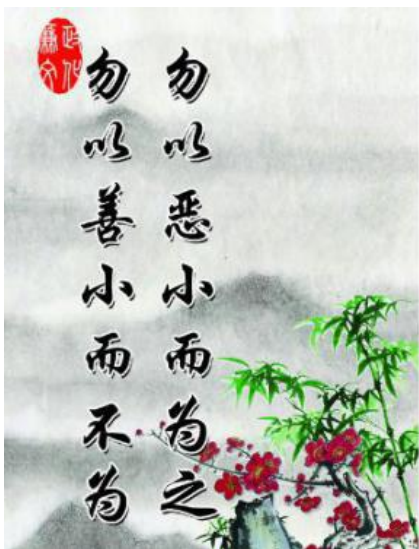 勿以恶小而为之
勿以善小而不为
廉政文化